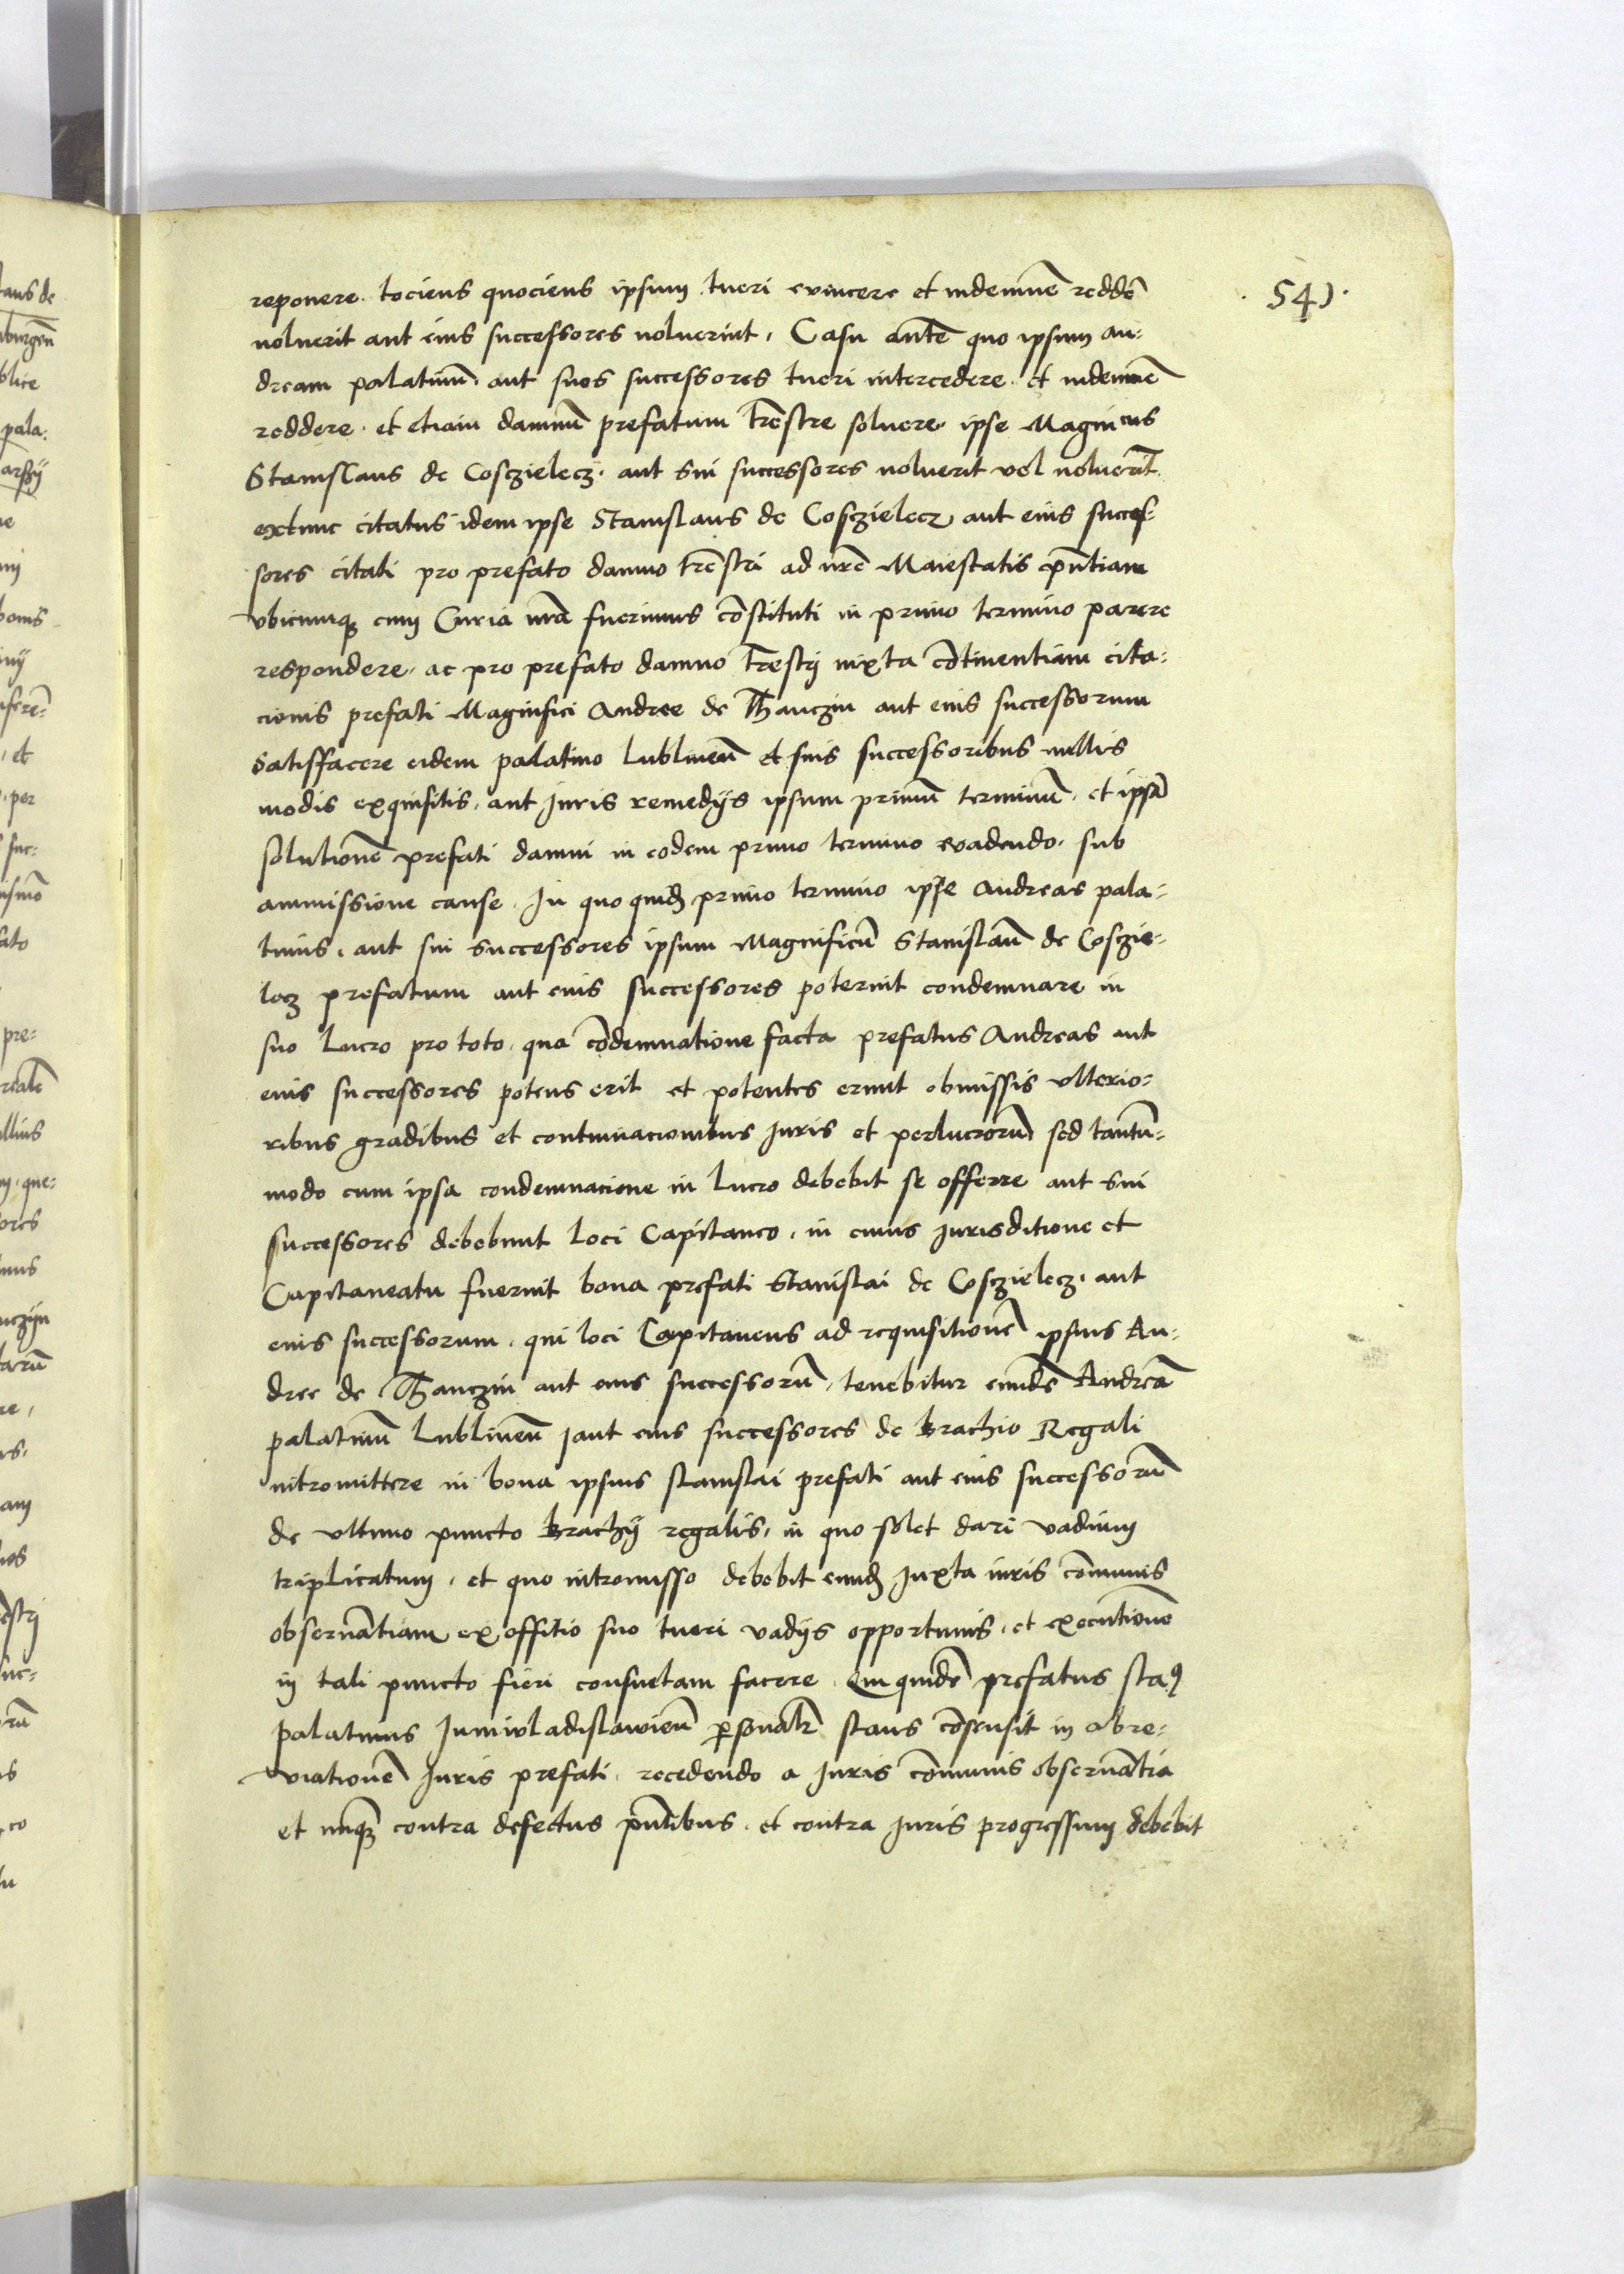 541
reponere. tociens quociens ipsum tueri evincere et indemnē reddē̄
noluerit aut eius successores noluerint, Casu autē quo ipsum An-
dream palatinū aut suos successores tueri intercedere. et indemnē
reddere. et etiam damnū prefatum tr̄estre soluere. ipse Magnicus
Stanislaus de Cosczielecz. aut sui successores noluerit vel noluerīt
extunc citatus idem ipse Stanislaus de Cosczielecz aut eius succes-
sores citati pro prefato damno tr̄estri ad nr̄e Maiestatis p̄ntiam
vbicunqȝ cum Curia nr̄a fuerimus cōstituti in primo termino parere
respondere. ac pro prefato damno tr̄estrj iuxta cōtinentiam cita-
cionis prefati Magnifici Andree de Thanczin aut eius successorum
satisffacere eidem palatino lublineñ et suis successoribus nullis
modis exquisitis, aut Juris remedijs ipsum primū terminū. et ipsā
solutionē prefati damni in eodem primo termino euadendo. sub
ammissione cause. In quo quidȝ primo termino ipse Andreas pala-
tinus. aut sui successores ipsum Magnificū Stanislaū de Cosczie-
lecz prefatum aut eius successores poterint condemnare in
suo Lucro pro toto. qua cōdemnatione facta prefatus Andreas aut
eius successores potens erit et potentes erunt obmissis vlterio-
ribus gradibus et continuacionibus Juris et perlucrorū sed tantū-
modo cum ipsa condemnacione in Lucro debebit se offerre aut sui
successores debebunt loci Capitaneo. in cuius Jurisditione et
Capitaneatu fuerint bona prefati Stanislai de Cosczielecz. aut
eius successorum. qui loci Capitaneus ad requisitionē ipsius An-
dree de Thanczin aut eius successorū, tenebitur eundē Andreā
palatinū Lublineñ aut eius successores de brachio Regali
intromittere in bona ipsius stanislai prefati aut eius successorū
de vltimo puncto brachij regalis, in quo solet dari vadium
triplicatum. et quo intromisso debebit eundȝ Juxta iuris cōmunis
obseruātiam ex offitio suo tueri vadijs opportunis. et executionē
in tali puncto fieri consuetam facere. Qui quidē prefatus staꝰ
palatinus Juniuladislauieñ p̄sonalr̄ stans cōsensit in abre-
viationē Juris prefati. recedendo a Juris cōmunis obseruātia
et nunqȝ contra defectus p̄ntibus. et contra Juris progressum debebit